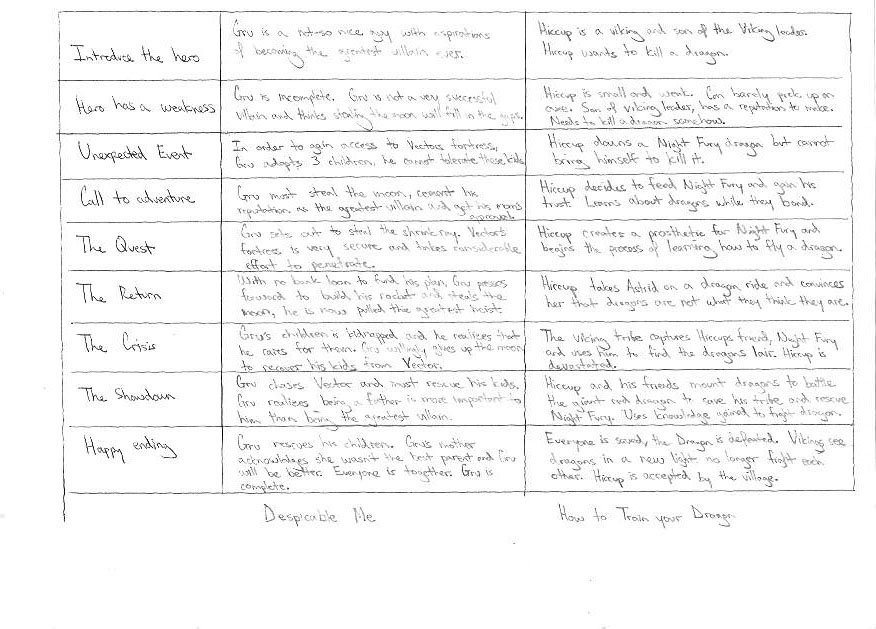 Introduce the hero
Gru is a not-so nice guy with aspirations
of becoming the greatest villain ever.
Hiccup is a viking and son of the Viking leader.
Hiccup wants to kill a dragon.
Hero has a weakness
Gru is incomplete. Gru is not a very successful
villain and thinks stealing the moon will fill in the gaps.
Hiccup is small and weak. Can barely pick up an
axe. Son of viking leader, has a reputation to make.
Needs to kill a dragon somehow.
Unexpected Event
In order to gain access to Vectors fortress,
Gru adopts 3 children, he cannot tolerate these kids
Hiccup downs a Night Fury dragon but cannot
bring himself to kill it.
Call to adventure
Gru must steal the moon, cement his
reputation as the greatest villain and get his mom's
approval.
Hiccup decides to feed Night Fury and gain his
trust. Learns about dragons while they bond.
The Quest
Gru sets out to steal the shrink ray. Vector's
fortress is very secure and takes considerable
effort to penetrate.
Hiccup creates a prosthetic for Night Fury and
begins the process of learning how to fly a dragon.
The Return
With no bank loan to fund his plan, Gru presses
forward to build his rocket and steals the
moon, he is now pulled the greatest heist.
Hiccup takes Astrid on a dragon ride and convinces
her that dragons are not what they think they are.
The Crisis
Gru's children is kidnapped and he realizes that
he cares for them. Gru willingly gives up the moon
to recover his kids from Vector.
The viking tribe captures Hiccups friend, Night Fury
and uses him to find the dragons lair. Hiccup is
devastated.
The Showdown
Gru chases Vector and must rescue his kids.
Gru realizes being a father is more important to
him than being the greatest villain.
Hiccup and his friends mount dragons to battle
the giant red dragon to save his tribe and rescue
Night Fury. Uses knowledge gained to fight dragon.
Happy ending
Gru rescues his children. Grus mother
acknowledges she wasn't the best parent and Gru
will be better. Everyone is together. Gru is
complete.
Everyone is saved, the Dragon is defeated. Viking see
dragons in a new light no longer fight each
other. Hiccup is accepted by the village.
Despicable Me
How to Train your Dragon